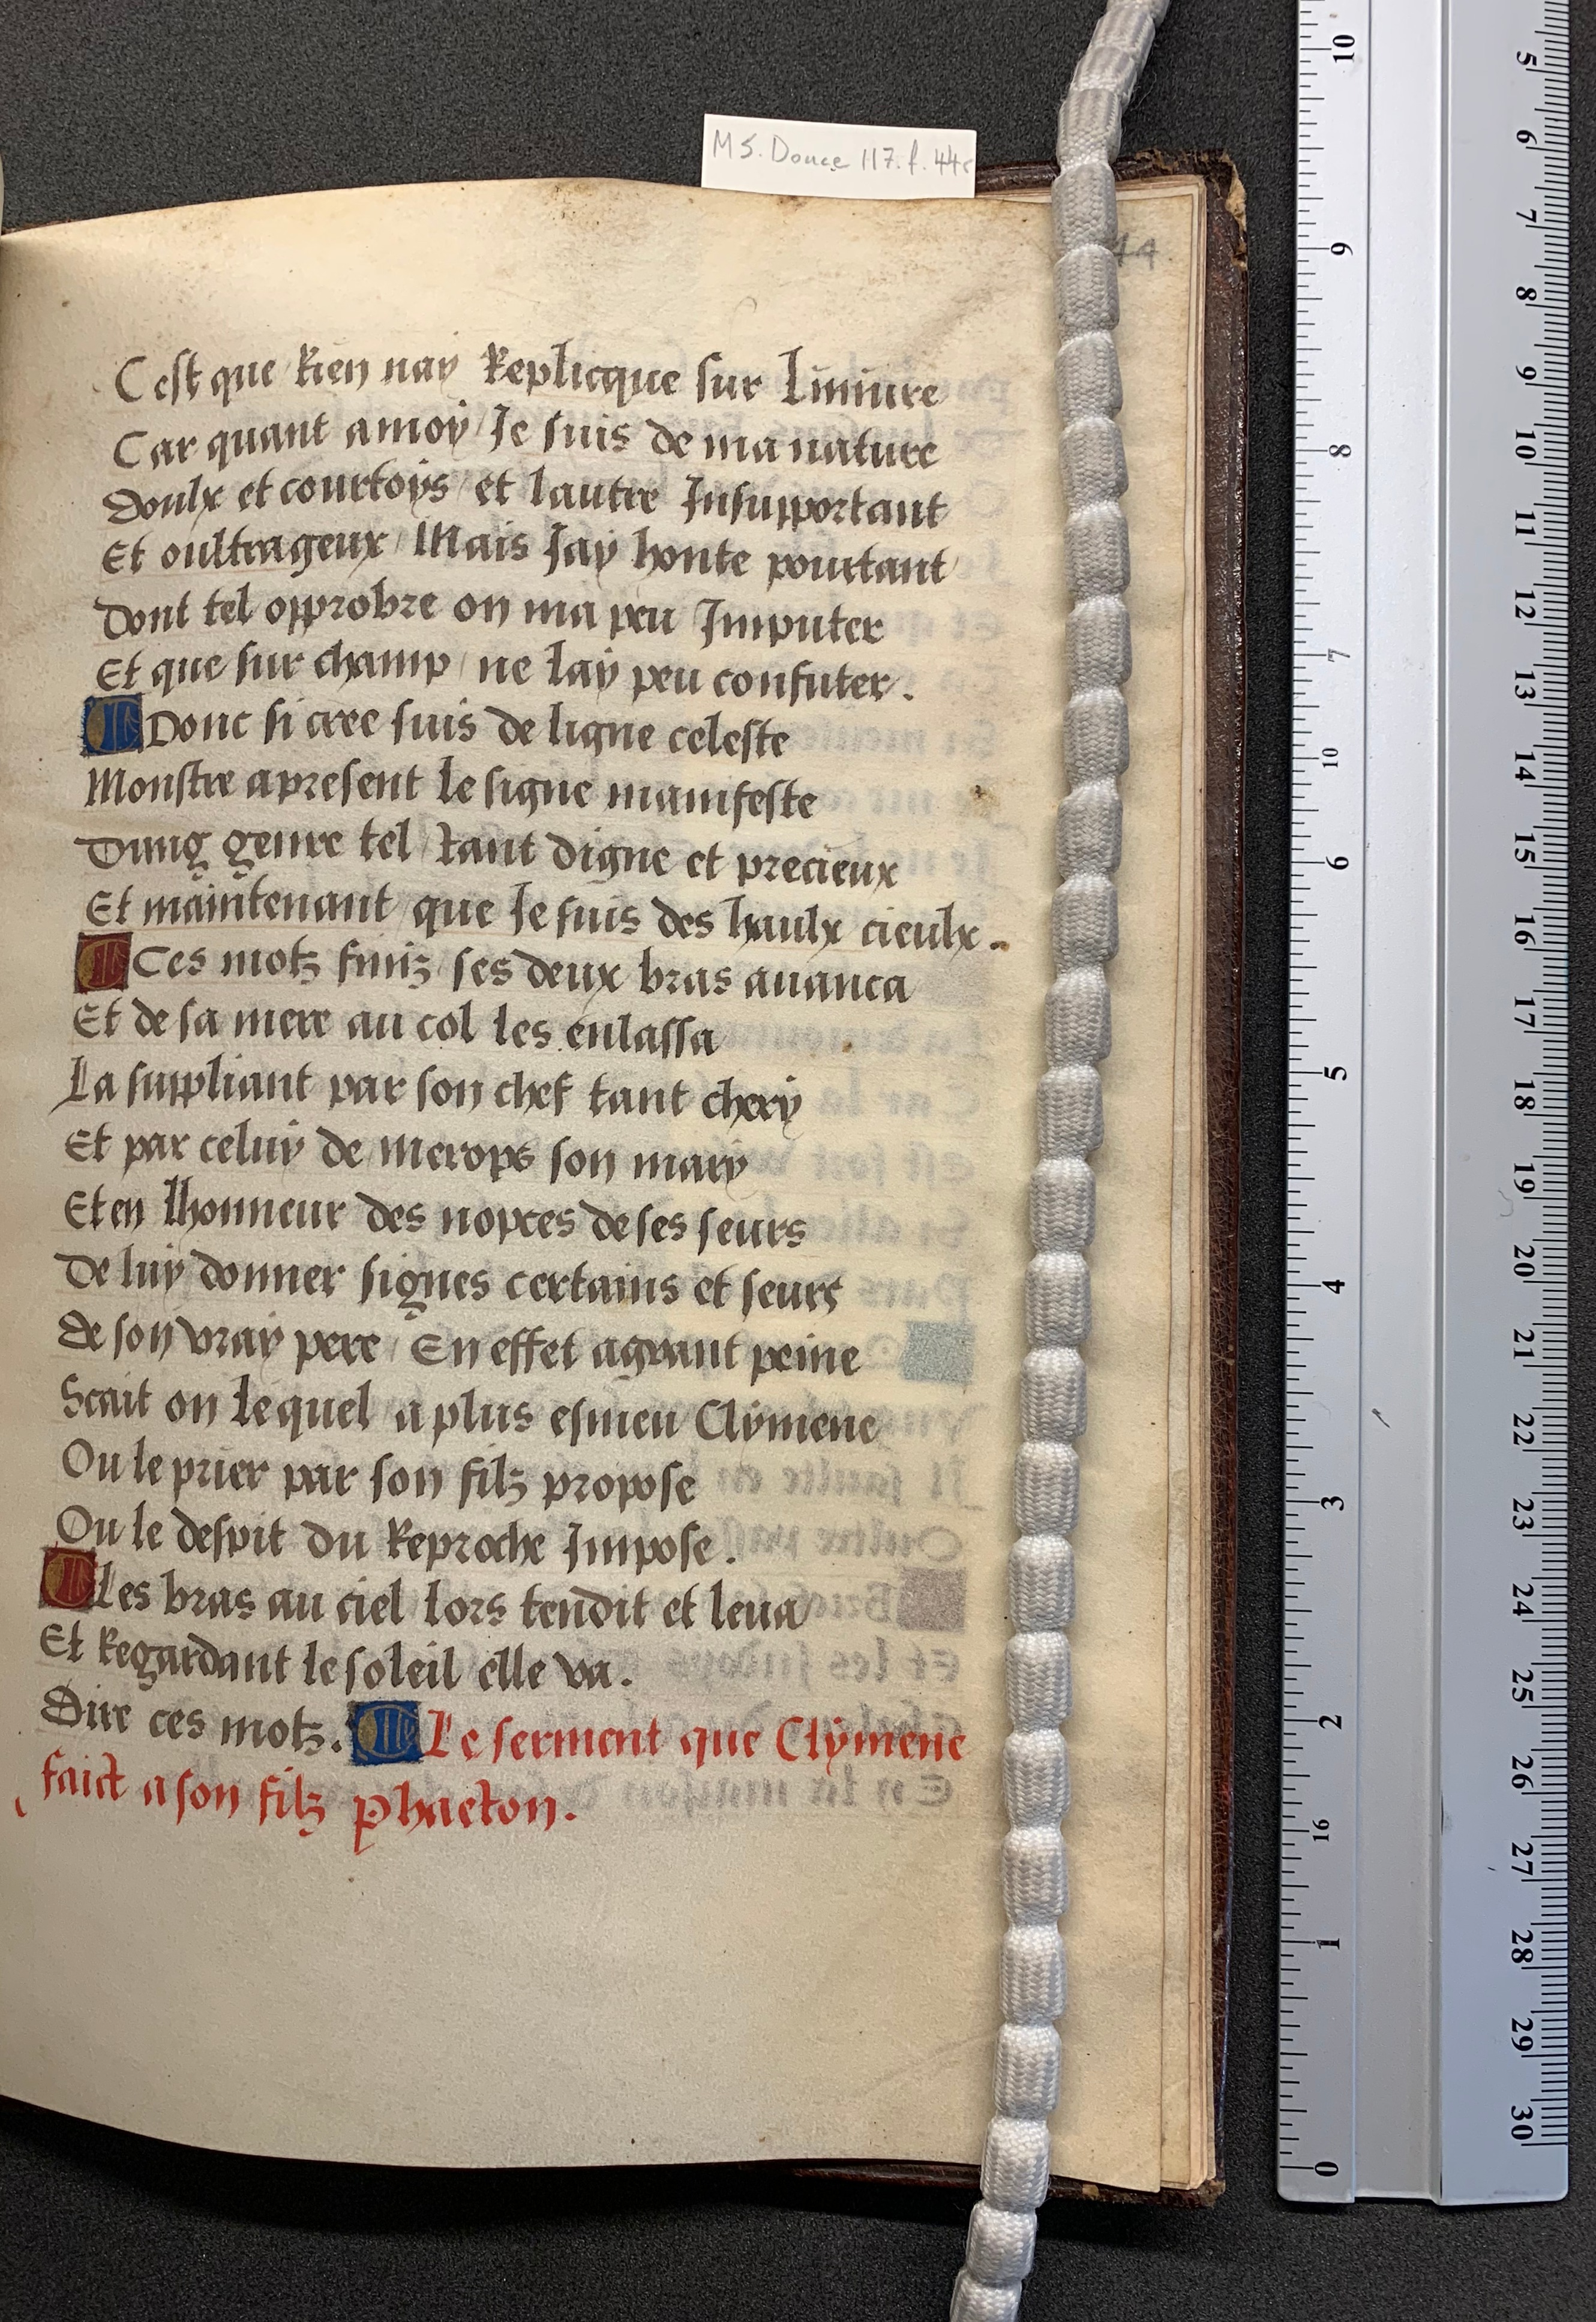 MS. Douce 117. f. 44r
44
C est que Rien nay Replicque sur Liniure
Car quant a moy / Je suis de ma nature
Doulx et courtoys / et lautre Insupportant
Et oultrageux / Mais Jay honte pourtant
Dont tel opprobre on ma peu Imputer
Et que sur champ / ne lay peu confuter .
Donc si cree suis de ligne celeste
Monstre apresent le signe manifeste
Dung genre tel / tant digne et precieux
Et maintenant / que Je suis des haulx cieulx .
Ces motz finiz / ses deux bras auanca
Et de sa mere au col les enlassa
La suppliant par son chef tant chery
Et par celuy de merops son mary
Et en lhonneur des nopces de ses seurs
De luy donner signes certains et seurs
De son vray pere / En effet agrant peine
Scait on lequel a plus esmeu Clymene
Ou le prier par son filz propose
Ou le despit du Reproche Impose .
Les bras au ciel lors tendit et leua
Et Regardant le soleil elle va .
Dire ces motz . Le serment que Clymene
faict a son filz phaeton .
10
9
8
7
6
5
4
3
2
1
0
10
16
5
6
7
8
9
10
11
12
13
14
15
16
17
18
19
20
21
22
23
24
25
26
27
28
29
30